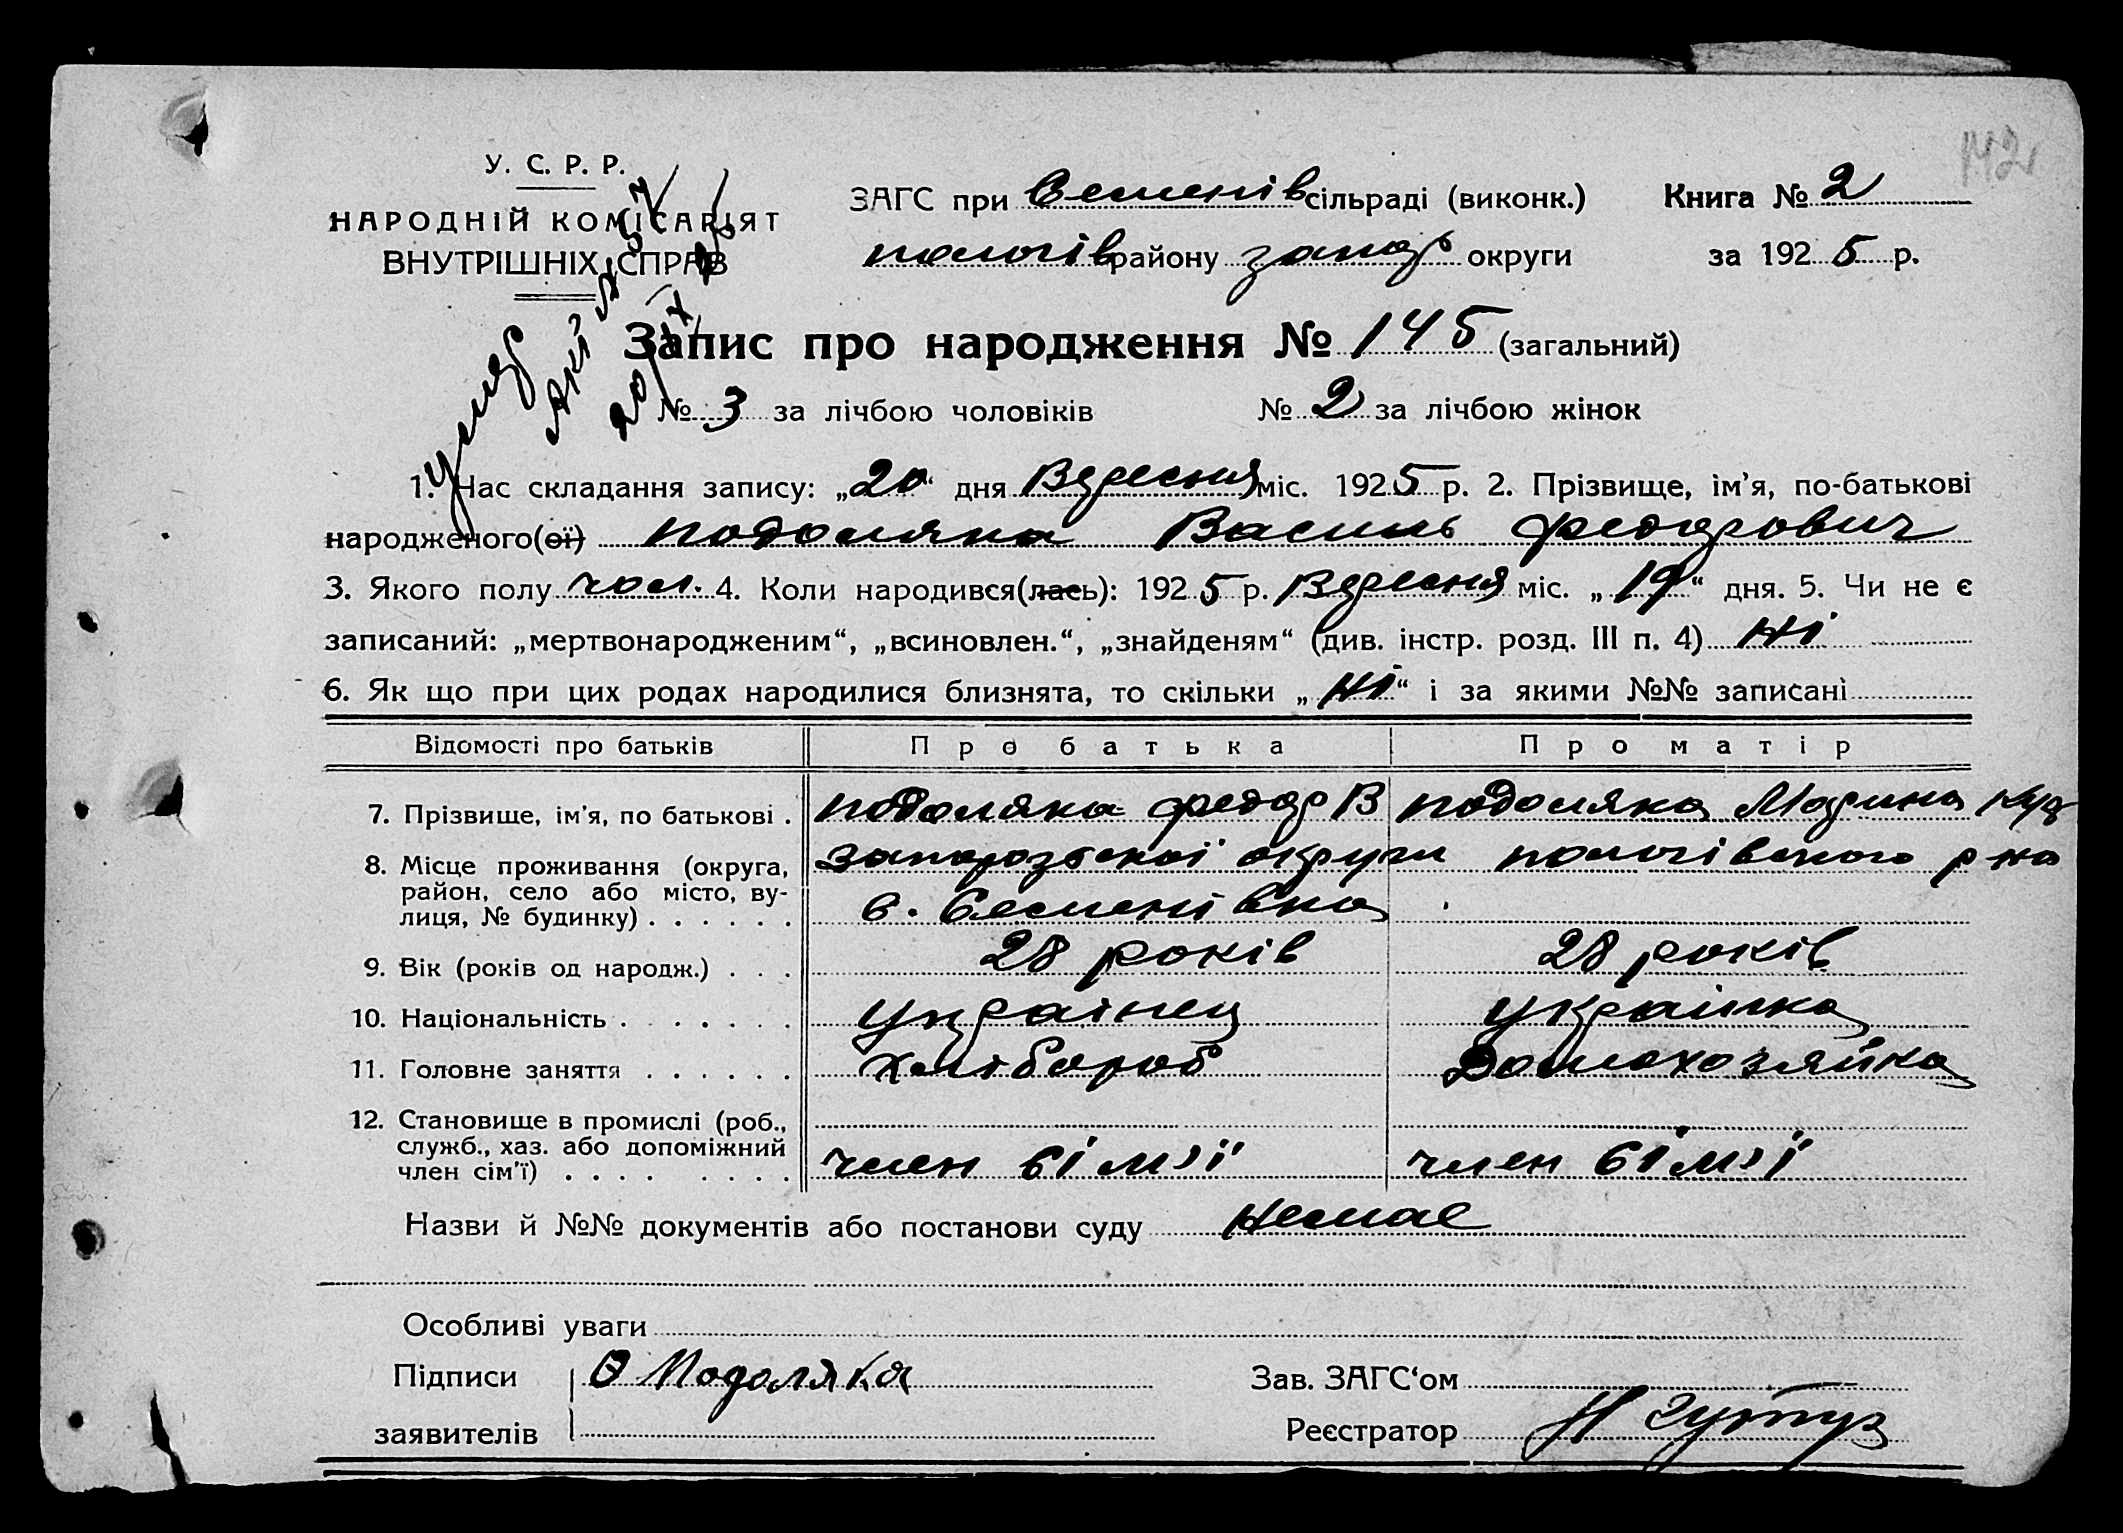 142
У. С. Р. Р.
НАРОДНІЙ КОМІСАРІЯТ
ВНУТРІШНІХ СПРАВ
ЗАГС при Семенів сільраді (виконк.) Книга № 2
пологів району запор округи за 1925 р.
умер
акт № 37
Запис про народження № 145 (загальний)
№ 3 за лічбою чоловіків № 2 за лічбою жінок
1. Час складання запису: „20“ дня Вересня міс. 1925 р. 2. Прізвище, ім’я, по-батькові
народженого(ої) подоляка Василь федорович
3. Якого полу чол. 4. Коли народився(лась): 1925 р. Вересня міс. „19“ дня. 5. Чи не є
записаний: „мертвонародженим“, „всиновлен.“, „знайденям“ (див. інстр. розд. III п. 4) Ні
6. Як що при цих родах народилися близнята, то скільки „Ні“ і за якими №№ записані
Відомості про батьків Про батька Про матір
7. Прізвище, ім’я, по батькові . подоляка федор В подоляка Марина
8. Місце проживання (округа, запорозської округи пологівского р-на
район, село або місто, ву-
лиця, № будинку) . . . . . . с. Семенівка
9. Вік (років од народж.) . . . 28 років 28 років
10. Національність . . . . . . . українец українка
11. Головне заняття . . . . . . хлібороб Домохозяйка
12. Становище в промислі (роб.,
служб., хаз. або допоміжний
член сім’ї) . . . . . . . . член сім’ї член сім’ї
Назви й №№ документів або постанови суду Немає
Особливі уваги
Підписи Ф Подоляка Зав. ЗАГС‘ом
заявителів Реєстратор Н